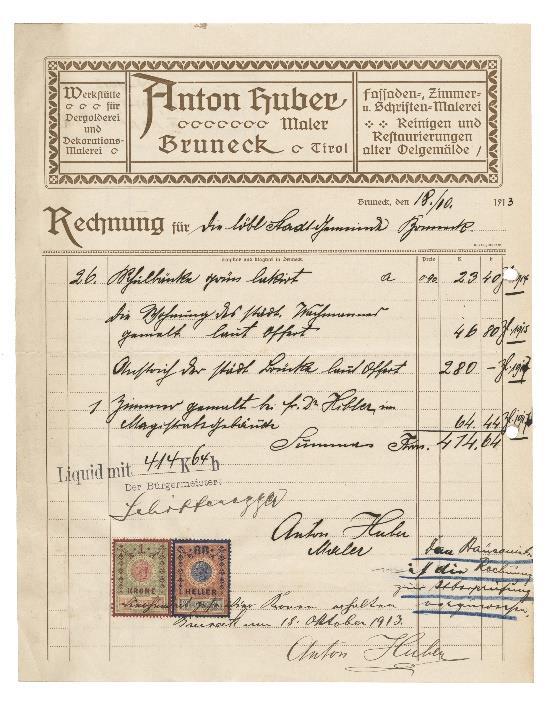 Werkstätte
für
Vergolderei
und
Dekorations-
Malerei
Anton Huber
Maler
Bruneck Tirol
Fassaden-, Zimmer-
u. Schriften-Malerei
Reinigen und
Restaurierungen
alter Oelgemälde
Bruneck, den 18./10. 1913
Rechnung für die löbl Stadtgemeinde Bruneck.
Preis K h
26. Schulbänke grün lakirt a 0 90 23 40
die Wohnung des städt. Wachmannes
gemalt laut Offert 46 80
Anstrich der städt Brücke laut Offert 280 –
1 Zimmer gemalt bei H. Dr Hibler, im
Magistratsgebäude 64 44
Summa 414 64
Liquid mit 414 K 64 h
Der Bürgermeister:
Anton Huber
Maler
1
KRONE
88
HELLER
den
ist die Rechnung
zur Überprüfung
vorgewiesen.
Kronen erhalten
Bruneck am 18. Oktober 1913.
Anton Huber